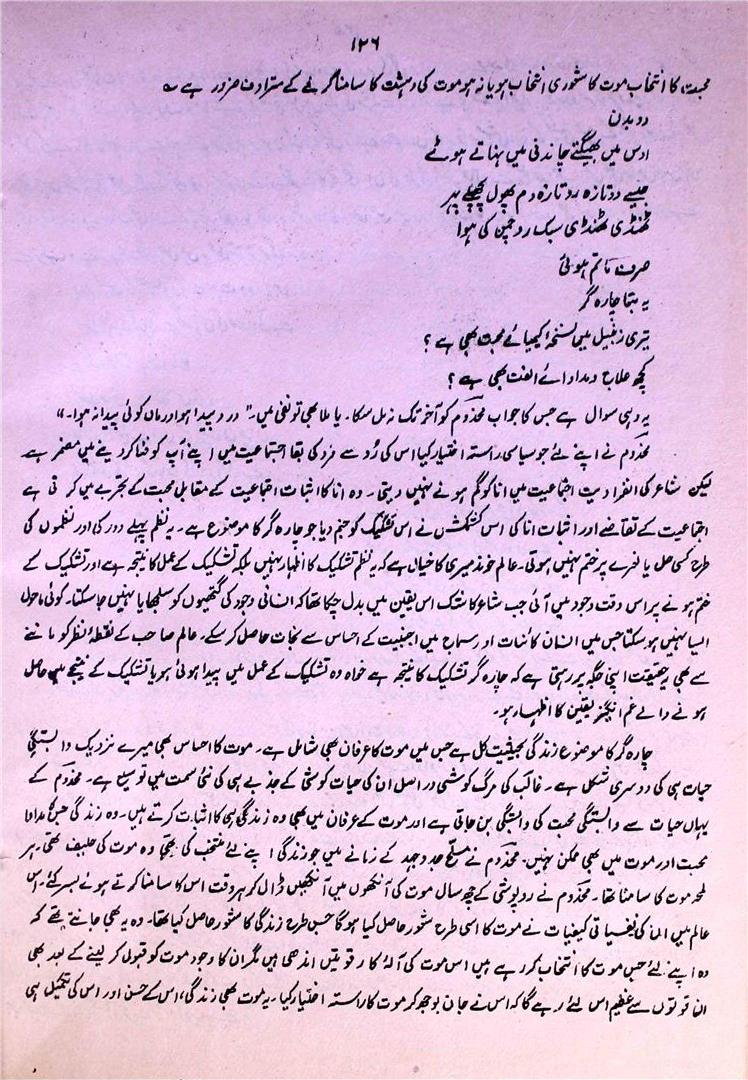 ۱۲۶
محبت کا انتخاب موت کا شعوری انتخاب ہو یا نہ ہو موت کی دہشت کا سامنا کرنے کے مترادف ضرور ہے ؎
دو بدن
اوس میں بھیگتے چاندنی میں نہاتے ہوئے
جیسے دو تازہ رو تازہ دم پھول پچھلے پہر
ٹھنڈی ٹھنڈی سبک رو چمن کی ہوا
صرف ماتم ہوئی
یہ بتا چارہ گر
تیری زنبیل میں نسخہ کیمیائے محبت بھی ہے ؟
کچھ علاج و مداوائے الفت بھی ہے ؟
یہ وہی سوال ہے جس کا جواب مخدوم کو آخر تک نہ مل سکا۔ یا ملا بھی تو نفی میں۔" درد پیدا ہو درماں کوئی پیدا نہ ہوا۔"
مخدوم نے اپنے لئے جو سیاسی راستہ اختیار کیا اس کی رُو سے فرد کی بقا اجتماعیت میں اپنے آپ کو فنا کر دینے میں مضمر ہے
لیکن شاعر کی انفرادیت اجتماعیت میں انا کو گم ہونے نہیں دیتی۔ وہ انا کا اثبات اجتماعیت کے مقابل محبت کے تجربے میں کرتی ہے
اجتماعیت کے تقاضے اور اثبات انا کی اس کشمکش نے اس تشکیک کو جنم دیا جو چارہ گر کا موضوع ہے۔ یہ نظم پہلے دور کی اور نظموں کی
طرح کسی حل یا نعرے پر ختم نہیں ہوتی۔ عالم خوندمیری کا خیال ہے کہ یہ نظم تشکیک کا اظہار نہیں بلکہ تشکیک کے عمل کا نتیجہ ہے اور تشکیک کے
ختم ہونے پر اس وقت وجود میں آئی جب شاعر کا شک اس یقین میں بدل چکا تھا کہ انسانی وجود کی گتھیوں کو سلجھایا نہیں جا سکتا۔ کوئی ماحول
ایسا نہیں ہو سکتا جس میں انسان کائنات اور سماج میں اجنبیت کے احساس سے نجات حاصل کر سکے۔ عالم صاحب کے نقطۂ نظر کو ماننے
سے بھی یہ حقیقت اپنی جگہ پر رہتی ہے کہ چارہ گر تشکیک کا نتیجہ ہے خواہ وہ تشکیک کے عمل میں پیدا ہوئی ہو یا تشکیک کے نتیجے میں حاصل
ہونے والے غم انگیز یقین کا اظہار ہو۔
چارہ گر کا موضوع زندگی بحیثیت کل ہے جس میں موت کا عرفان بھی شامل ہے۔ موت کا احساس بھی میرے نزدیک وابستگیِ
حیات ہی کی دوسری شکل ہے۔ غالب کی مرگ کوشی دراصل ان کی حیات کوشی کے جذبے ہی کی نئی سمت میں توسیع ہے۔ مخدوم کے
یہاں حیات سے وابستگی محبت کی وابستگی بن جاتی ہے اور موت کے عرفان میں بھی وہ زندگی ہی کا اثبات کرتے ہیں۔ وہ زندگی جس کا مداوا
محبت اور موت میں بھی ممکن نہیں۔ مخدوم نے مسلح جدوجہد کے زمانے میں جو زندگی اپنے لئے منتخب کی تھی وہ موت کی حلیف تھی۔ ہر
لمحہ موت کا سامنا تھا۔ مخدوم نے روپوشی کے چھ سال موت کی آنکھوں میں آنکھیں ڈال کر ہر وقت اس کا سامنا کرتے ہوئے بسر کئے، اس
عالم میں ان کی نفسیاتی کیفیات نے موت کا اسی طرح شعور حاصل کیا ہوگا جس طرح زندگی کا شعور حاصل کیا تھا۔ وہ یہ بھی جانتے تھے کہ
وہ اپنے لئے جس موت کا انتخاب کر رہے ہیں اس موت کی آلۂ کار قوتیں اندھی ہیں مگر ان کا وجود موت کو قبول کر لینے کے بعد بھی
ان قوتوں سے عظیم اس لئے رہے گا کہ اس نے جان بوجھ کر موت کا راستہ اختیار کیا۔ یہ موت بھی زندگی، اس کے حسن اور اس کی تکمیل ہی